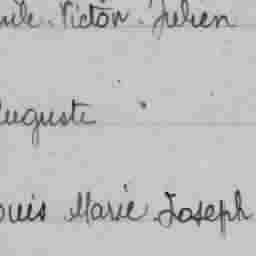 Victor Julien
Auguste
ouis Marie Joseph